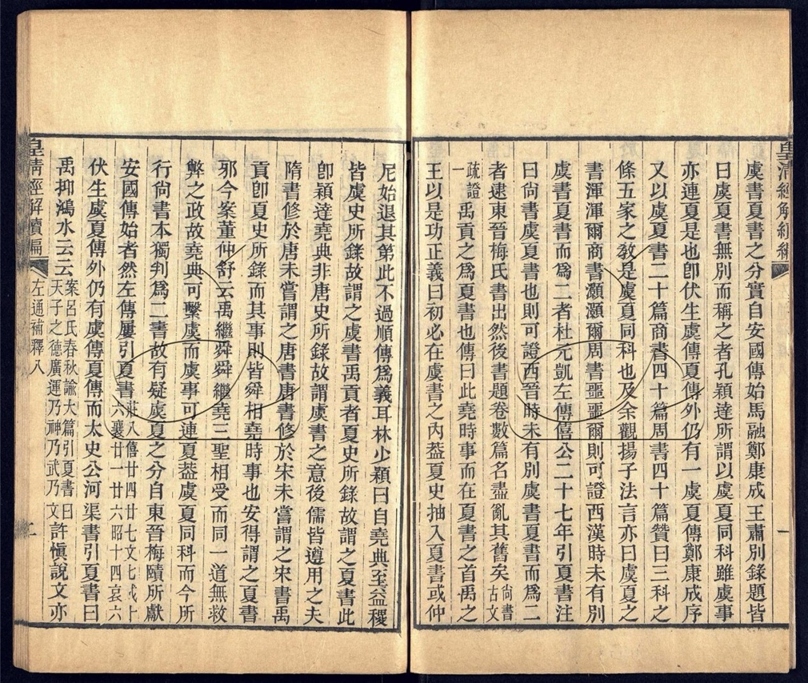 皇清經解續編
虞書夏書之分實自安國傳始馬融鄭康成王肅別錄題皆
曰虞夏書無別而稱之者孔穎達所謂以虞夏同科雖虞事
亦連夏是也卽伏生虞傳夏傳外仍有一虞夏傳鄭康成序
又以虞夏書二十篇商書四十篇周書四十篇贊曰三科之
條五家之敎是虞夏同科也及余觀揚子法言亦曰虞夏之
書渾渾爾商書灝灝爾周書噩噩爾則可證西漢時未有別
虞書夏書而爲二者杜元凱左傳僖公二十七年引夏書注
曰尙書虞夏書也則可證西晉時未有別虞書夏書而爲二
者逮東晉梅氏書出然後書題卷數篇名盡亂其舊矣尙書古文
疏證一禹貢之爲夏書也傳曰此堯時事而在夏書之首禹之
王以是功正義曰初必在虞書之內葢夏史抽入夏書或仲
尼始退其第此不過順傳爲義耳林少穎曰自堯典至益稷
皆虞史所錄故謂之虞書禹貢者夏史所錄故謂之夏書此
卽穎達堯典非唐史所錄故謂虞書之意後儒皆遵用之夫
隋書修於唐未嘗謂之唐書唐書修於宋未嘗謂之宋書禹
貢卽夏史所錄而其事則皆舜相堯時事也安得謂之夏書
邪今案董仲舒云禹繼舜舜繼堯三聖相受而同一道無救
弊之政故堯典可繫虞而虞事可連夏葢虞夏同科而今所
行尙書本獨判爲二書故有疑虞夏之分自東晉梅賾所獻
安國傳始者然左傳屢引夏書莊八僖廿四廿七文七成十六襄廿一廿六昭十四哀六
伏生虞夏傳外仍有虞傳夏傳而太史公河渠書引夏書曰
禹抑鴻水云云案呂氏春秋諭大篇引夏書曰天子之德廣運乃神乃武乃文許愼說文亦
皇清經解續編
左通補釋八
二